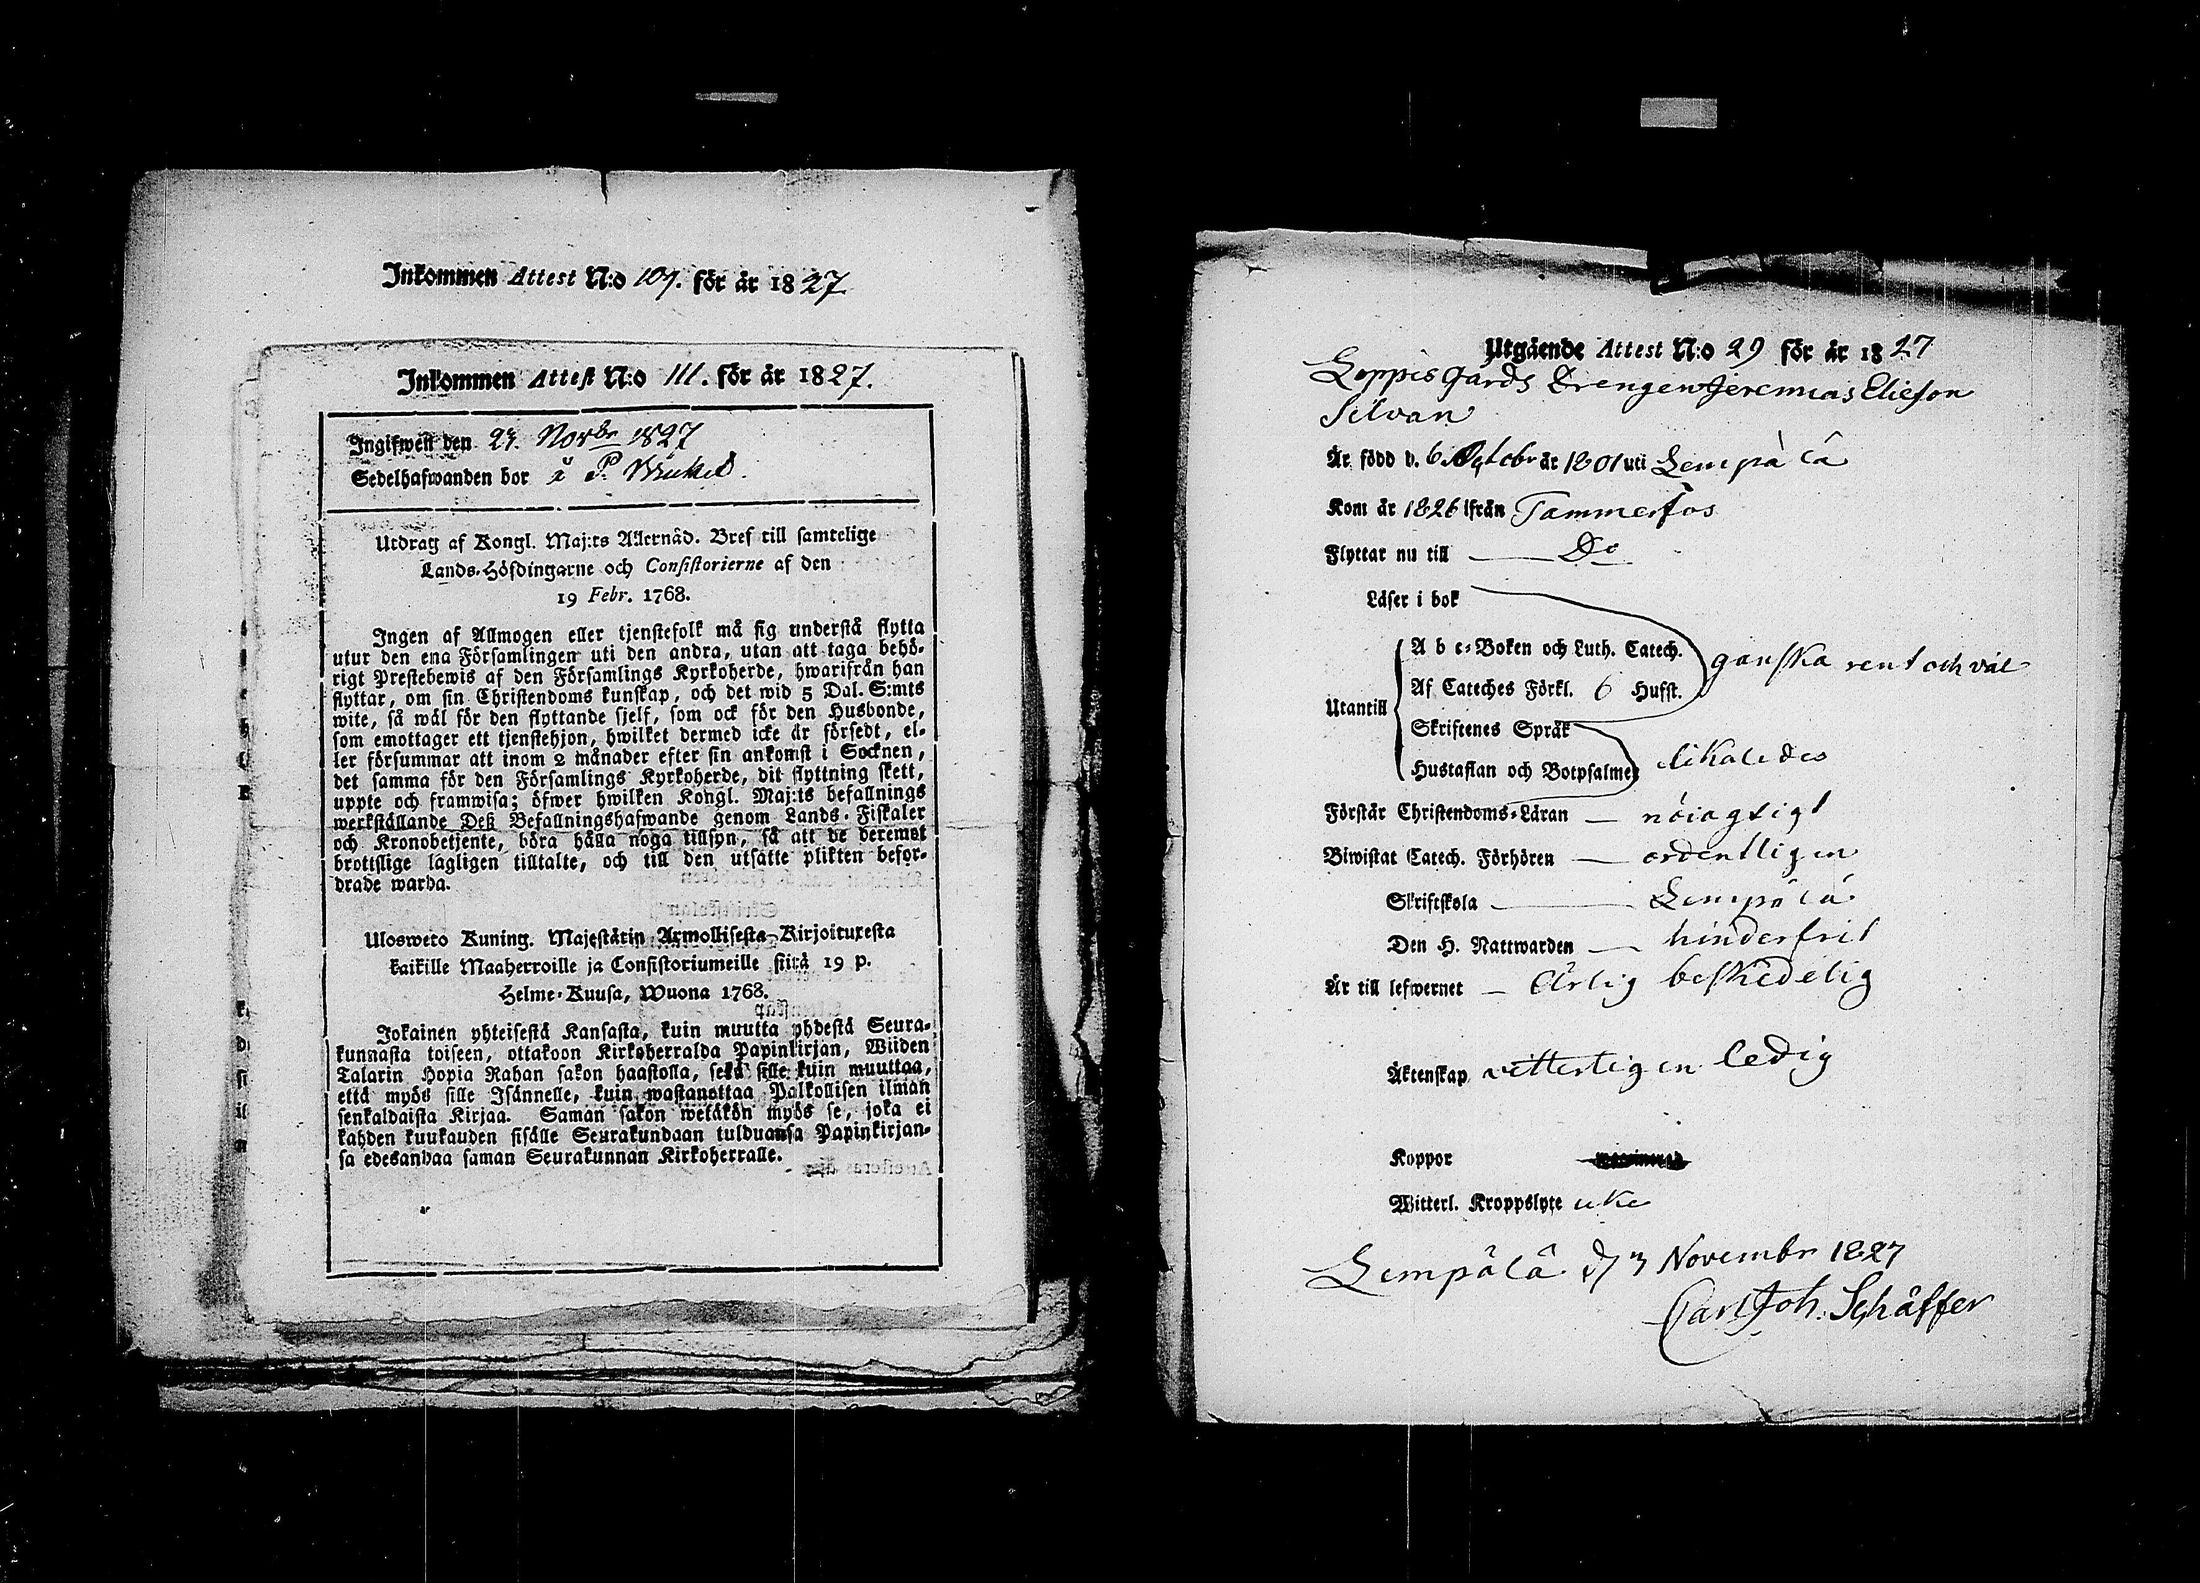 Inkommen Attest N:o 109. för år 1827.
Inkommen Attest N:o 111. för år 1827.
Ingifwen den 27. Novbr 1827
Sedelhafwanden bor å P.
Utdrag af Kongl. Maj:ts Allernåd. Bref till samtelige
Lands-Höfdingarne och Consistorierne af den
19 Febr. 1768.
Ingen af Allmogen eller tjenstefolk må sig understå flytta
utur den ena Församlingen uti den andra, utan att taga behö-
rigt Prestebewis af den Församlings Kyrkoherde, hwarifrån han
flyttar, om sin Christendoms kunskap, och det wid 5 Dal. S:mts
wite, så wäl för den flyttande sjelf, som ock för den Husbonde,
som emottager ett tjenstehjon, hwilket dermed icke är försedt, el-
ler försummar att inom 2 månader efter sin ankomst i Socknen,
det samma för den Församlings Kyrkoherde, dit flyttning skett,
uppte och framwisa; öfwer hwilken Kongl. Maj:ts befallnings
werkställande Deß Befallningshafwande genom Lands-Fiskaler
och Kronobetjente, böra hålla noga tillsyn, så att de deremot
brottslige lagligen tilltalte, och till den utsatte plikten befor-
drade warda.
Ulosweto Kuning. Majestätin Armollisesta Kirjoituxesta
kaikille Maaherroille ja Consistoriumeille siitä 19 p.
Helme-Kuusa, Wuona 1768.
Jokainen yhteisestä Kansasta, kuin muutta yhdestä Seura-
kunnasta toiseen, ottakoon Kirkoherralda Papinkirjan, Wiiden
Talarin Hopia Rahan sakon haastolla, sekä sille kuin muuttaa,
että myös sille Isännelle, kuin wastanottaa Palkollisen ilman
senkaldaista Kirjaa. Saman sakon wetäkön myös se, joka ei
kahden kuukauden sisälle Seurakundaan tulduansa Papinkirjan-
sa edesanhaa saman Seurakunnan Kirkoherralle.
Utgående Attest N:o 29 för år 1827
Loppis gårds Drengen Jeremias Elieson
Silvan
Är född d. 6 Octobr år 1801 uti Lempälä
Kom år 1826 ifrån Tammerfos
Flyttar nu till Do
Läser i bok
A b c-Boken och Luth. Catech. ganska rent och väl
Af Cateches Förkl. 6 Hufst.
Utantill
Skriftenes Språk
Hustaflan och Botpsalmer likaledes
Förstår Christendoms-Läran nöiagtigt
Biwistat Catech. Förhören ordentligen
Skriftskola Lempälä
Den H. Nattwarden hinderfrit
Är till lefwernet Ärlig beskedelig
Äktenskap vitterligen ledig
Koppor
Witterl. Kroppslyte icke
Lempälä d 3 Novembr 1827
Carl Joh. Schäffer